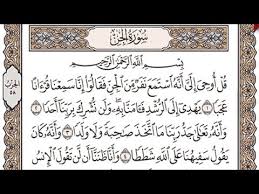 سُورَةُ الجِنِّ
بِسْمِ اللَّهِ الرَّحْمَٰنِ الرَّحِيمِ
قُلْ أُوحِيَ إِلَيَّ أَنَّهُ اسْتَمَعَ نَفَرٌ مِّنَ الْجِنِّ فَقَالُوا إِنَّا سَمِعْنَا قُرْءَانًا
عَجَبًا ۝١ يَهْدِي إِلَى الرُّشْدِ فَـَٔامَنَّا بِهِۦ وَلَن نُّشْرِكَ بِرَبِّنَا أَحَدًا ۝٢
وَأَنَّهُۥ تَعَٰلَىٰ جَدُّ رَبِّنَا مَا اتَّخَذَ صَٰحِبَةً وَلَا وَلَدًا ۝٣ وَأَنَّهُۥ كَانَ
يَقُولُ سَفِيهُنَا عَلَى اللَّهِ شَطَطًا ۝٤ وَأَنَّا ظَنَنَّا أَن لَّن تَقُولَ الْإِنسُ
الحزب
٥٨